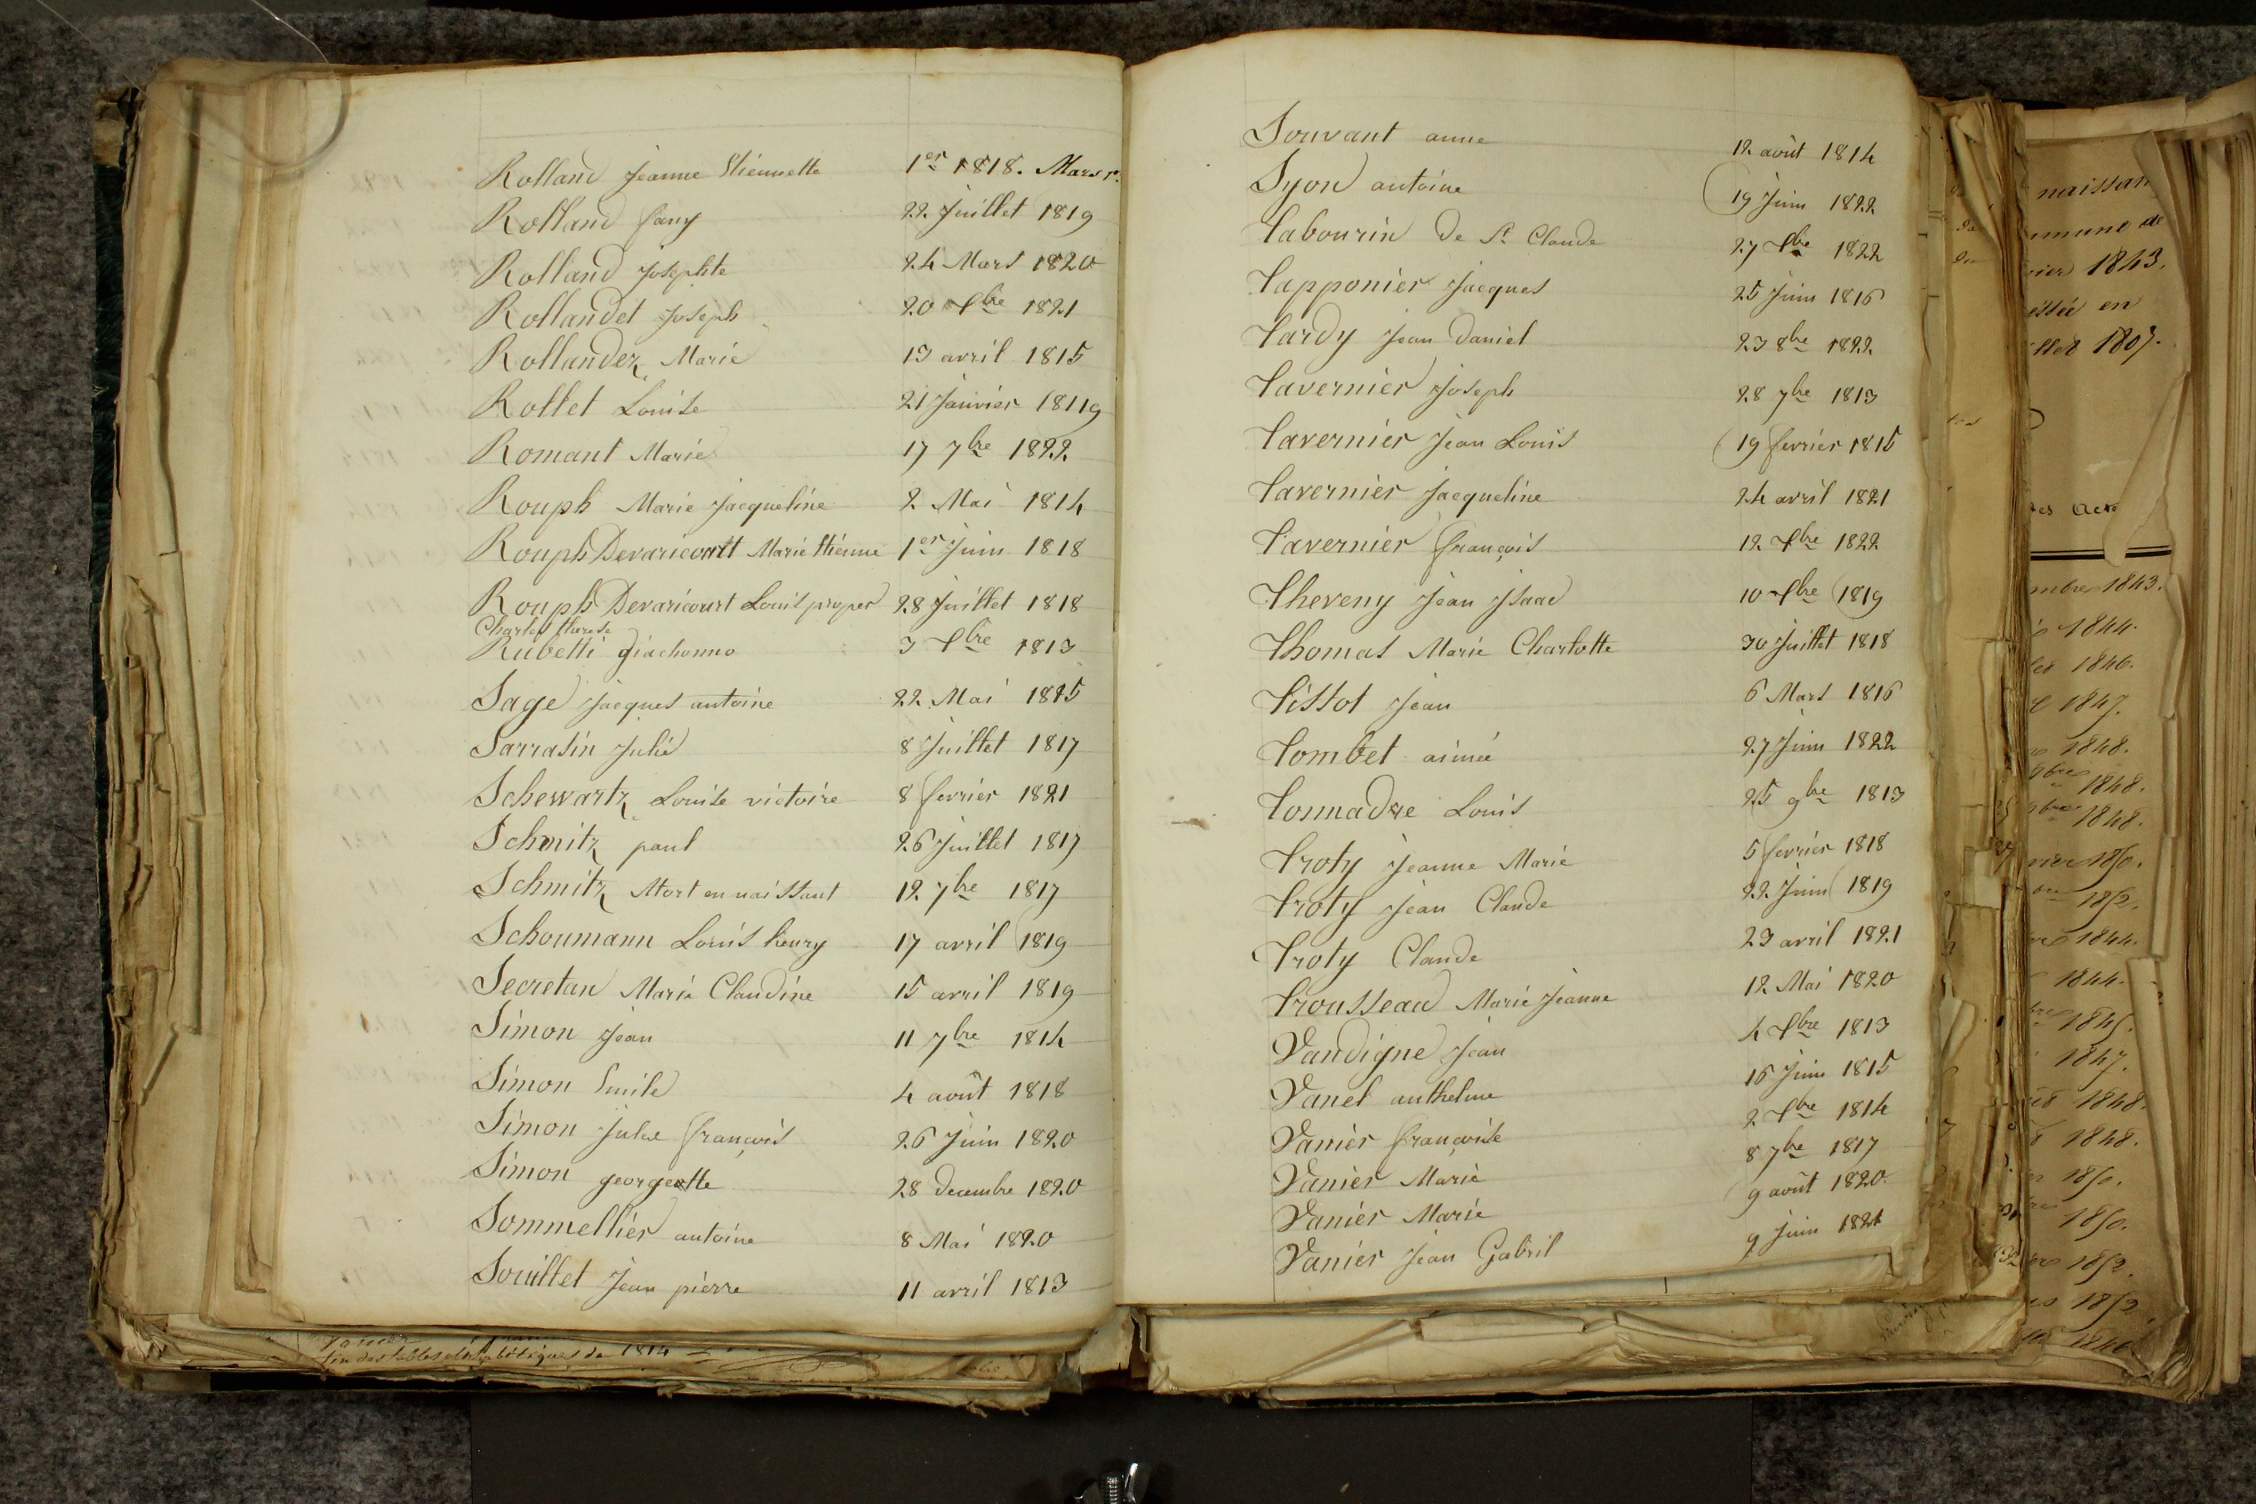 Rolland Jeanne Etiennette 1er 1818. Mars
Rolland fany 22 Juillet 1819
Rolland Josephte 24 Mars 1820
Rollandet Joseph 20 Xbre 1821
Rollandez Marie 13 avril 1815
Rollet Louise 21 Janvier 1819
Romant Marie 17 7bre 1822
Rouph Marie Jacqueline 2 Mai 1814
Rouph Devaricourt Marie Etienne 1er Juin 1818
Rouph Devaricourt Louis prosper 28 Juillet 1818
Charles therese
Rubetti giachonno 3 Xbre 1813
Sage Jacques antoine 22 Mai 1815
Sarrasin Julie 8 Juillet 1817
Schewartz Louise victoire 8 fevrier 1821
Schmitz paul 26 Juillet 1817
Schmitz Mort en naissant 12 7bre 1817
Schoumann Louis henry 17 avril 1819
Secretan Marie Claudine 15 avril 1819
Simon Jean 11 7bre 1814
Simon Emile 4 août 1818
Simon Jules françois 26 Juin 1820
Simon georgette 28 decembre 1820
Sommellier antoine 8 Mai 1820
Souillet Jean pierre 11 avril 1813
fin des tables alphabétiques de 1814
Souvant anne 12 août 1814
Syon antoine 19 Juin 1822
Tabourin De St Claude 27 Xbre 1822
Tapponier Jacques 25 Juin 1816
Tardy Jean Daniel 23 8bre 1822
Tavernier Joseph 28 7bre 1813
Tavernier Jean Louis 19 fevrier 1815
Tavernier Jacqueline 24 avril 1821
Tavernier françois 12 Xbre 1822
Theveny Jean Isaac 10 Xbre 1819
Thomas Marie Charlotte 30 Juillet 1818
Tissot Jean 6 Mars 1816
Tombet aimée 27 Juin 1822
Tonnadre Louis 25 9bre 1813
Troty Jeanne Marie 5 fevrier 1818
Troty Jean Claude 22 Juin 1819
Troty Claude 23 avril 1821
Trousseau Marie Jeanne 12 Mai 1820
Vandigne Jean 4 Xbre 1813
Vanel anthelme 16 Juin 1815
Vanier françoise 2 Xbre 1814
Vanier Marie 8 7bre 1817
Vanier Marie 9 août 1820
Vanier Jean Gabril 9 Juin 1821
1843.
en
1807.
1843.
1844.
1846.
1847.
1848.
1848.
1848.
1850.
1852.
1844.
1844.
1845.
1847.
1848.
1848.
1850.
1850.
1852.
1852